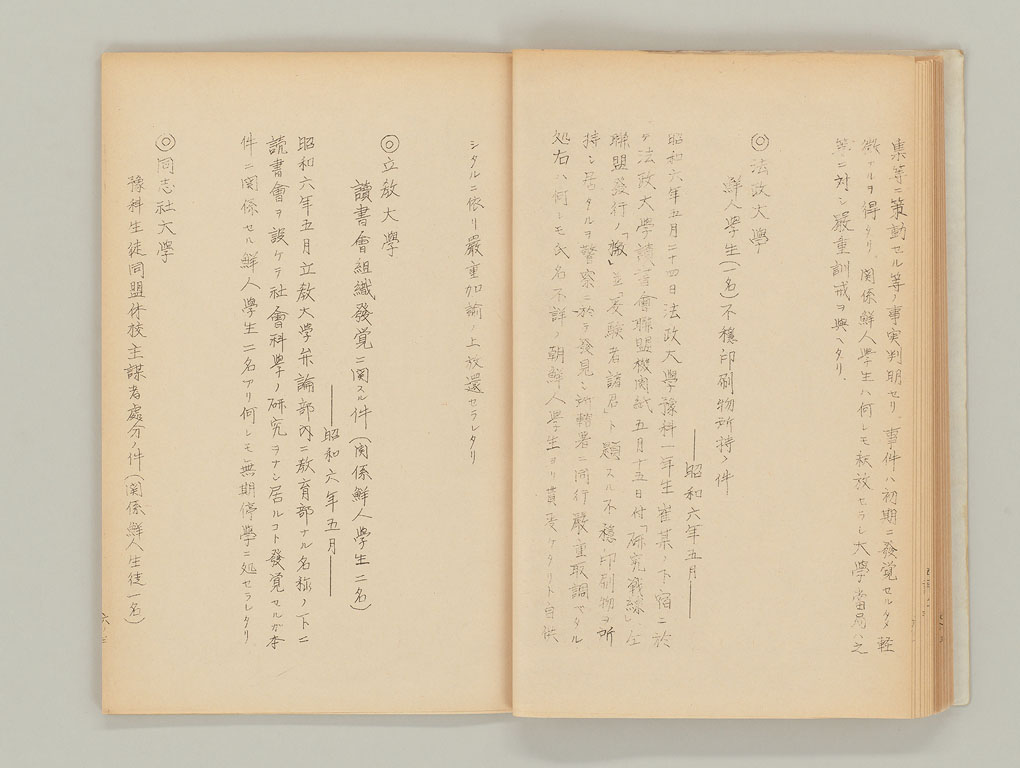 集等ニ策動セル等ノ事実判明セリ、事件ハ初期ニ發覚セルタメ軽
微ナルヲ得タリ、関係鮮人學生ハ何レモ釈放セラレ大學當局ハ之
等ニ対シ嚴重訓戒ヲ與ヘタリ、
◎法政大學
鮮人學生(一名)不穏印刷物所持ノ件
――昭和六年五月――
昭和六年五月二十四日法政大學豫科一年生崔某ノ下宿ニ於
テ法政大學讀書會聯盟機関紙五月十五日付「研究戰線」、全
聯盟發行ノ「檄」並「受験者諸君」ト題スル不穏印刷物ヲ所
持シ居タルヲ警察ニ於テ發見シ所轄署ニ同行嚴重取調ベタル
処右ハ何レモ氏名不詳ノ朝鮮人學生ヨリ貰受ケタリト自供
シタルニ依リ嚴重加諭ノ上放還セラレタリ
◎立教大學
讀書會組織發覚ニ関スル件(関係鮮人學生二名)
――昭和六年五月――
昭和六年五月立教大学弁論部内ニ教育部ナル名称ノ下ニ
読書會ヲ設ケテ社會科學ノ研究ヲナシ居ルコト發覚セルガ本
件ニ関係セル鮮人學生二名アリ何レモ無期停學ニ処セラレタリ
◎同志社大學
豫科生徒同盟休校主謀者處分ノ件(関係鮮人生徒一名)